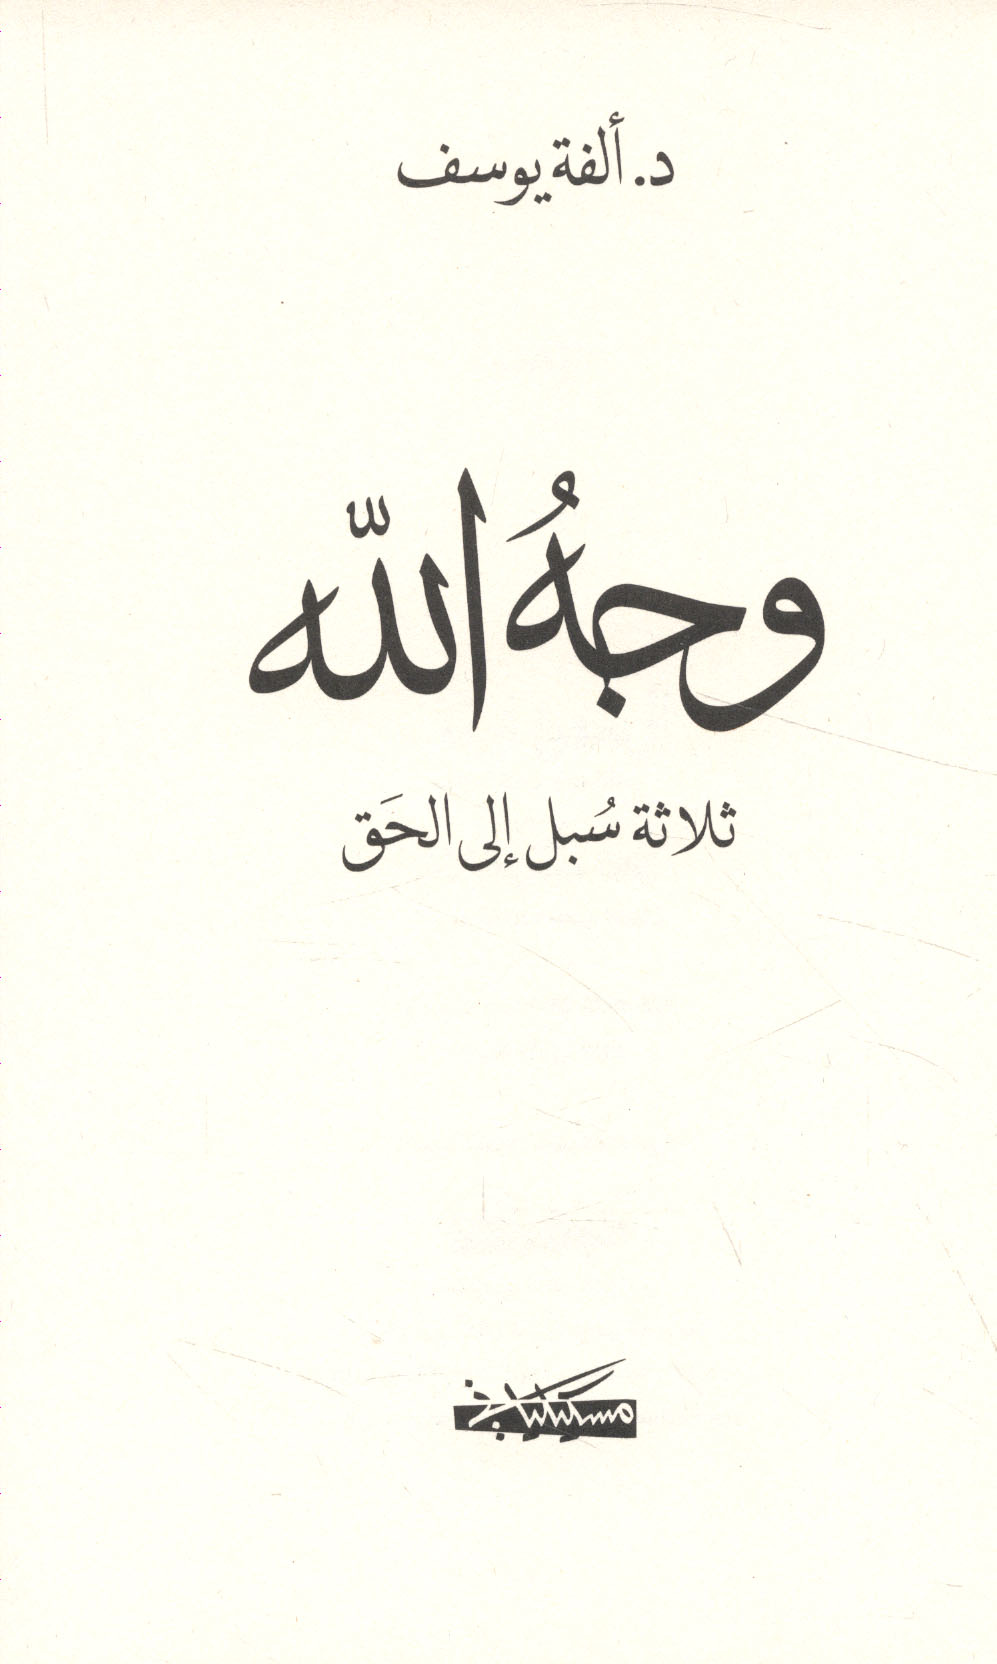 د. ألفة يوسف
وجهُ اللّه
ثلاثة سُبل إلى الحَق
مسكيلياني